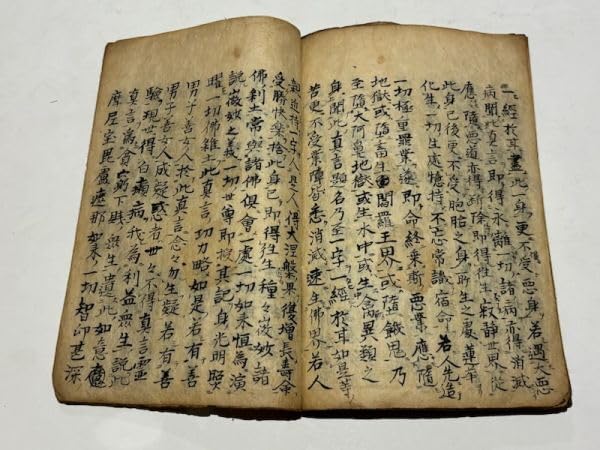 一經於耳盡此一身更不受惡身若遇大惡
病聞此真言即得永離一切諸病亦得消滅
應墮惡道亦得斷除即得往生寂靜世界從
此身已後更不受胞胎之身所生之處蓮華
化生一切生處憶持不忘常識宿命若先造
一切極重罪業遂即命終乘斯惡業應隨
地獄或墮畜生閻羅王界或墮餓鬼乃
至墮大阿鼻地獄或生水中或生禽異類之
身聞此真言題名乃至一字一經於耳如是等
苦更不受業障皆悉消滅速生佛界若人
親近持一字人是人得大涅槃果復增長壽命
受勝快樂捨此身已即得往生種々微妙諸
佛刹土常與諸佛俱會一處一切如來恒為演
說微妙之義一切世尊即授其記身光明照
曜一切佛雖土此真言功力略如是若有善
男子善女人於此真言念々勿生疑若有善
男子善女人或疑惑者世々不得真言靈
驗現世得白癩病我為利益眾生說此
真言為貧窮下賤眾生遺此如意
摩尼宝毘盧遮那如来一切智印甚深